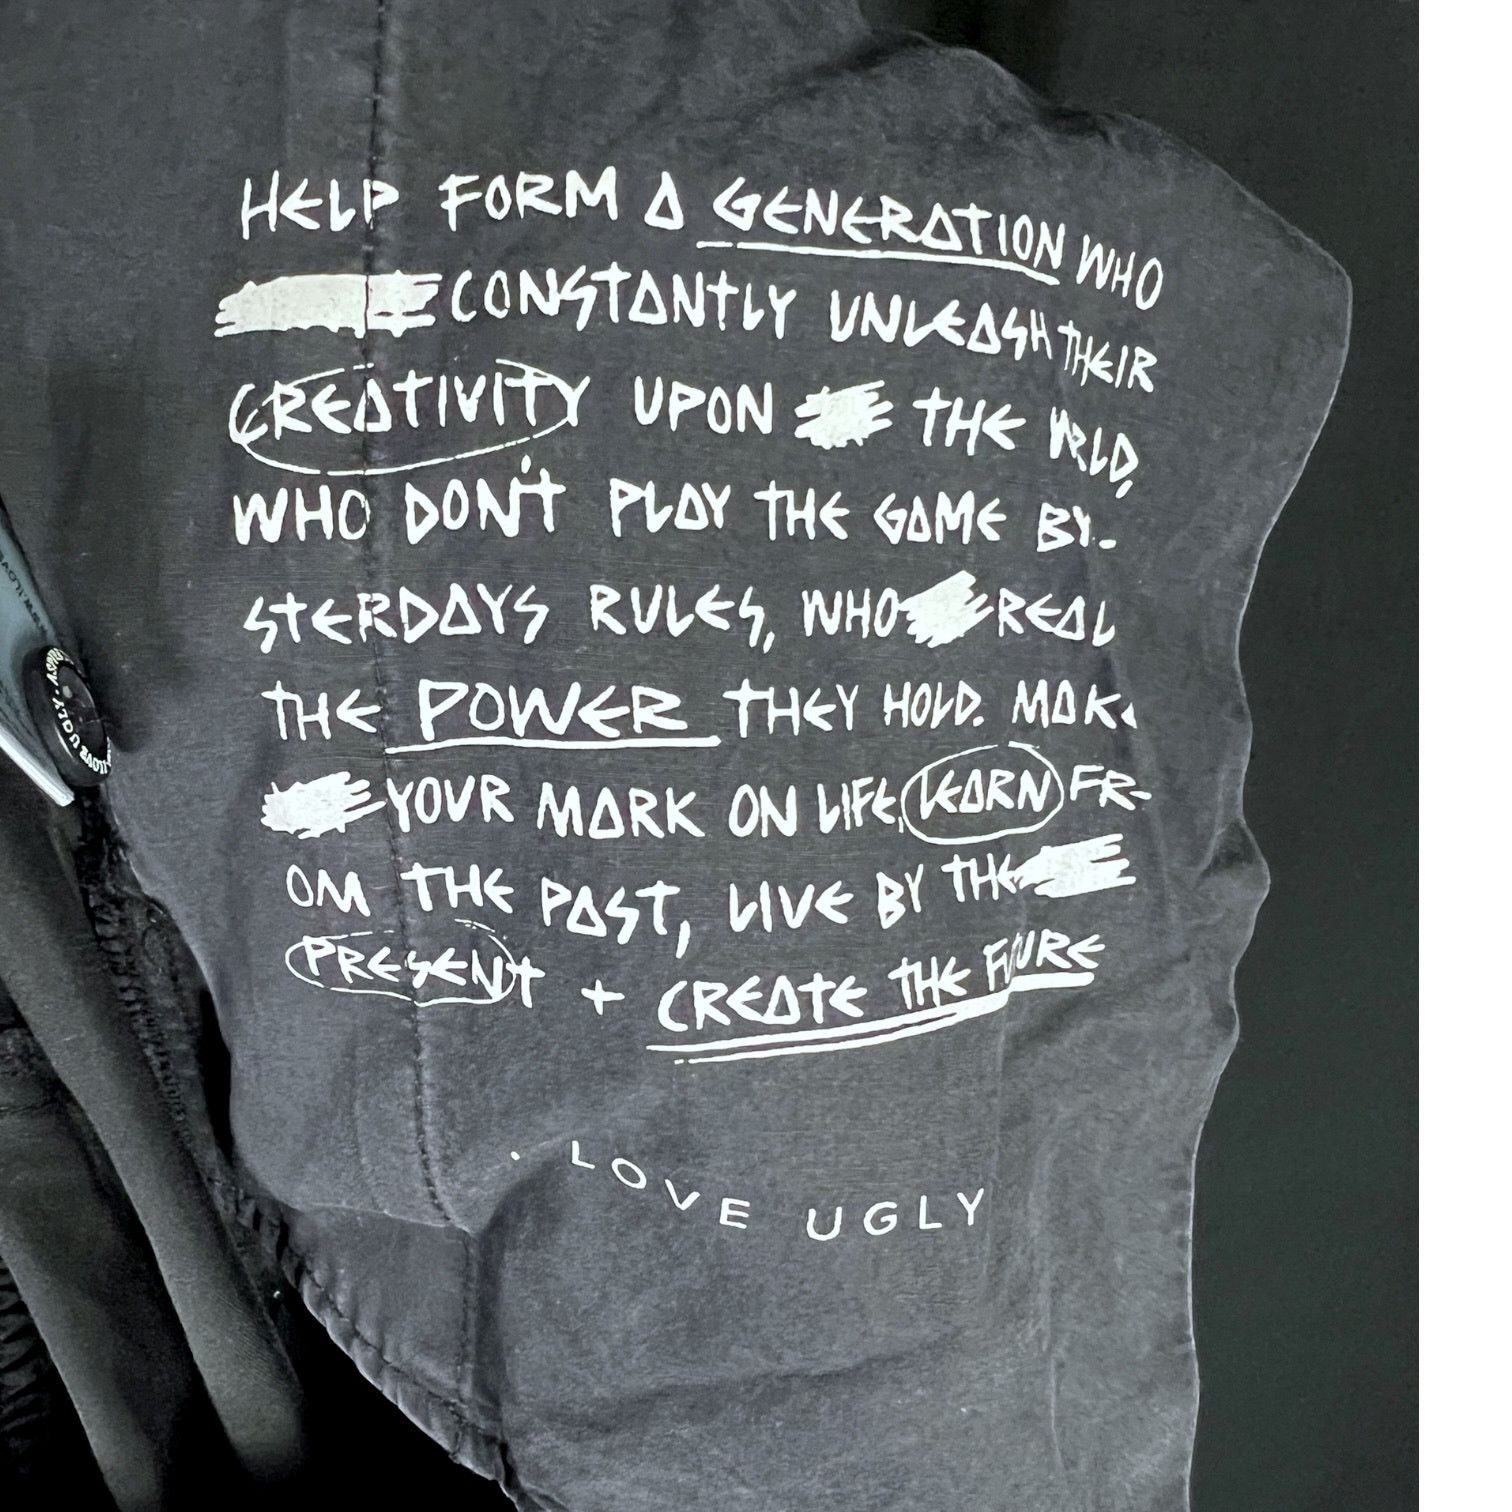 HELP FORM A GENERATION WHO
CONSTANTLY UNLEASH THEIR
CREATIVITY UPON THE WRLD,
WHO DON'T PLAY THE GAME BY-
STERDAYS RULES, WHO REAL
THE POWER THEY HOLD. MAK
YOUR MARK ON LIFE, LEARN FR-
OM THE PAST, LIVE BY THE
PRESENT + CREATE THE FUTURE
. LOVE UGLY
LOVE UGLY.